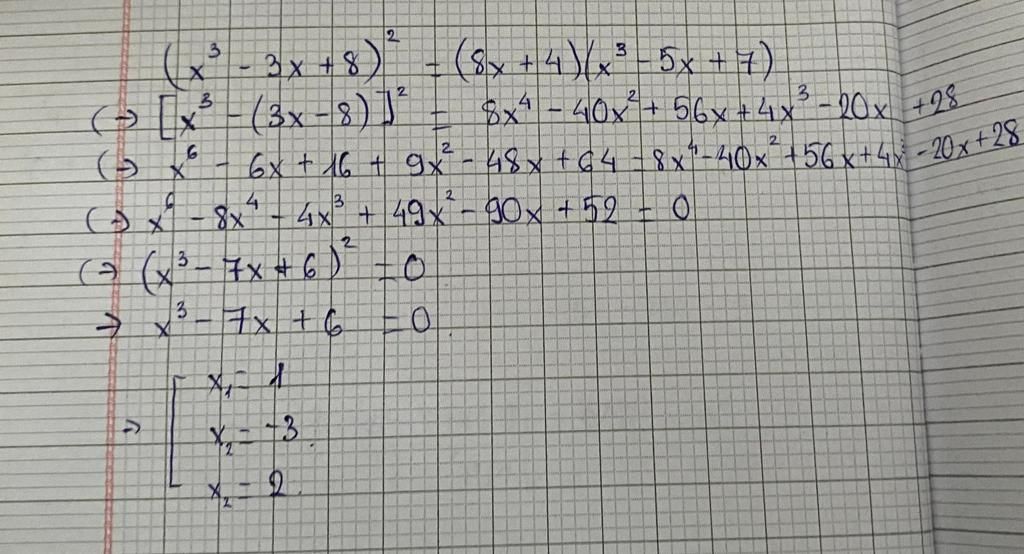 (x³ - 3x + 8)² = (8x + 4)(x³ - 5x + 7)
(→ [x³ - (3x - 8)]² = 8x⁴ - 40x² + 56x + 4x³ - 20x + 28
(→ x⁶ - 6x + 16 + 9x² - 48x + 64 - 8x⁴ - 40x² + 56x + 4x³ - 20x + 28
(→ x⁶ - 8x⁴ - 4x³ + 49x² - 90x + 52 = 0
(→ (x³ - 7x + 6)² = 0
→ x³ - 7x + 6 = 0
x₁ = 1
→ [ x₂ = -3
x₂ = 2